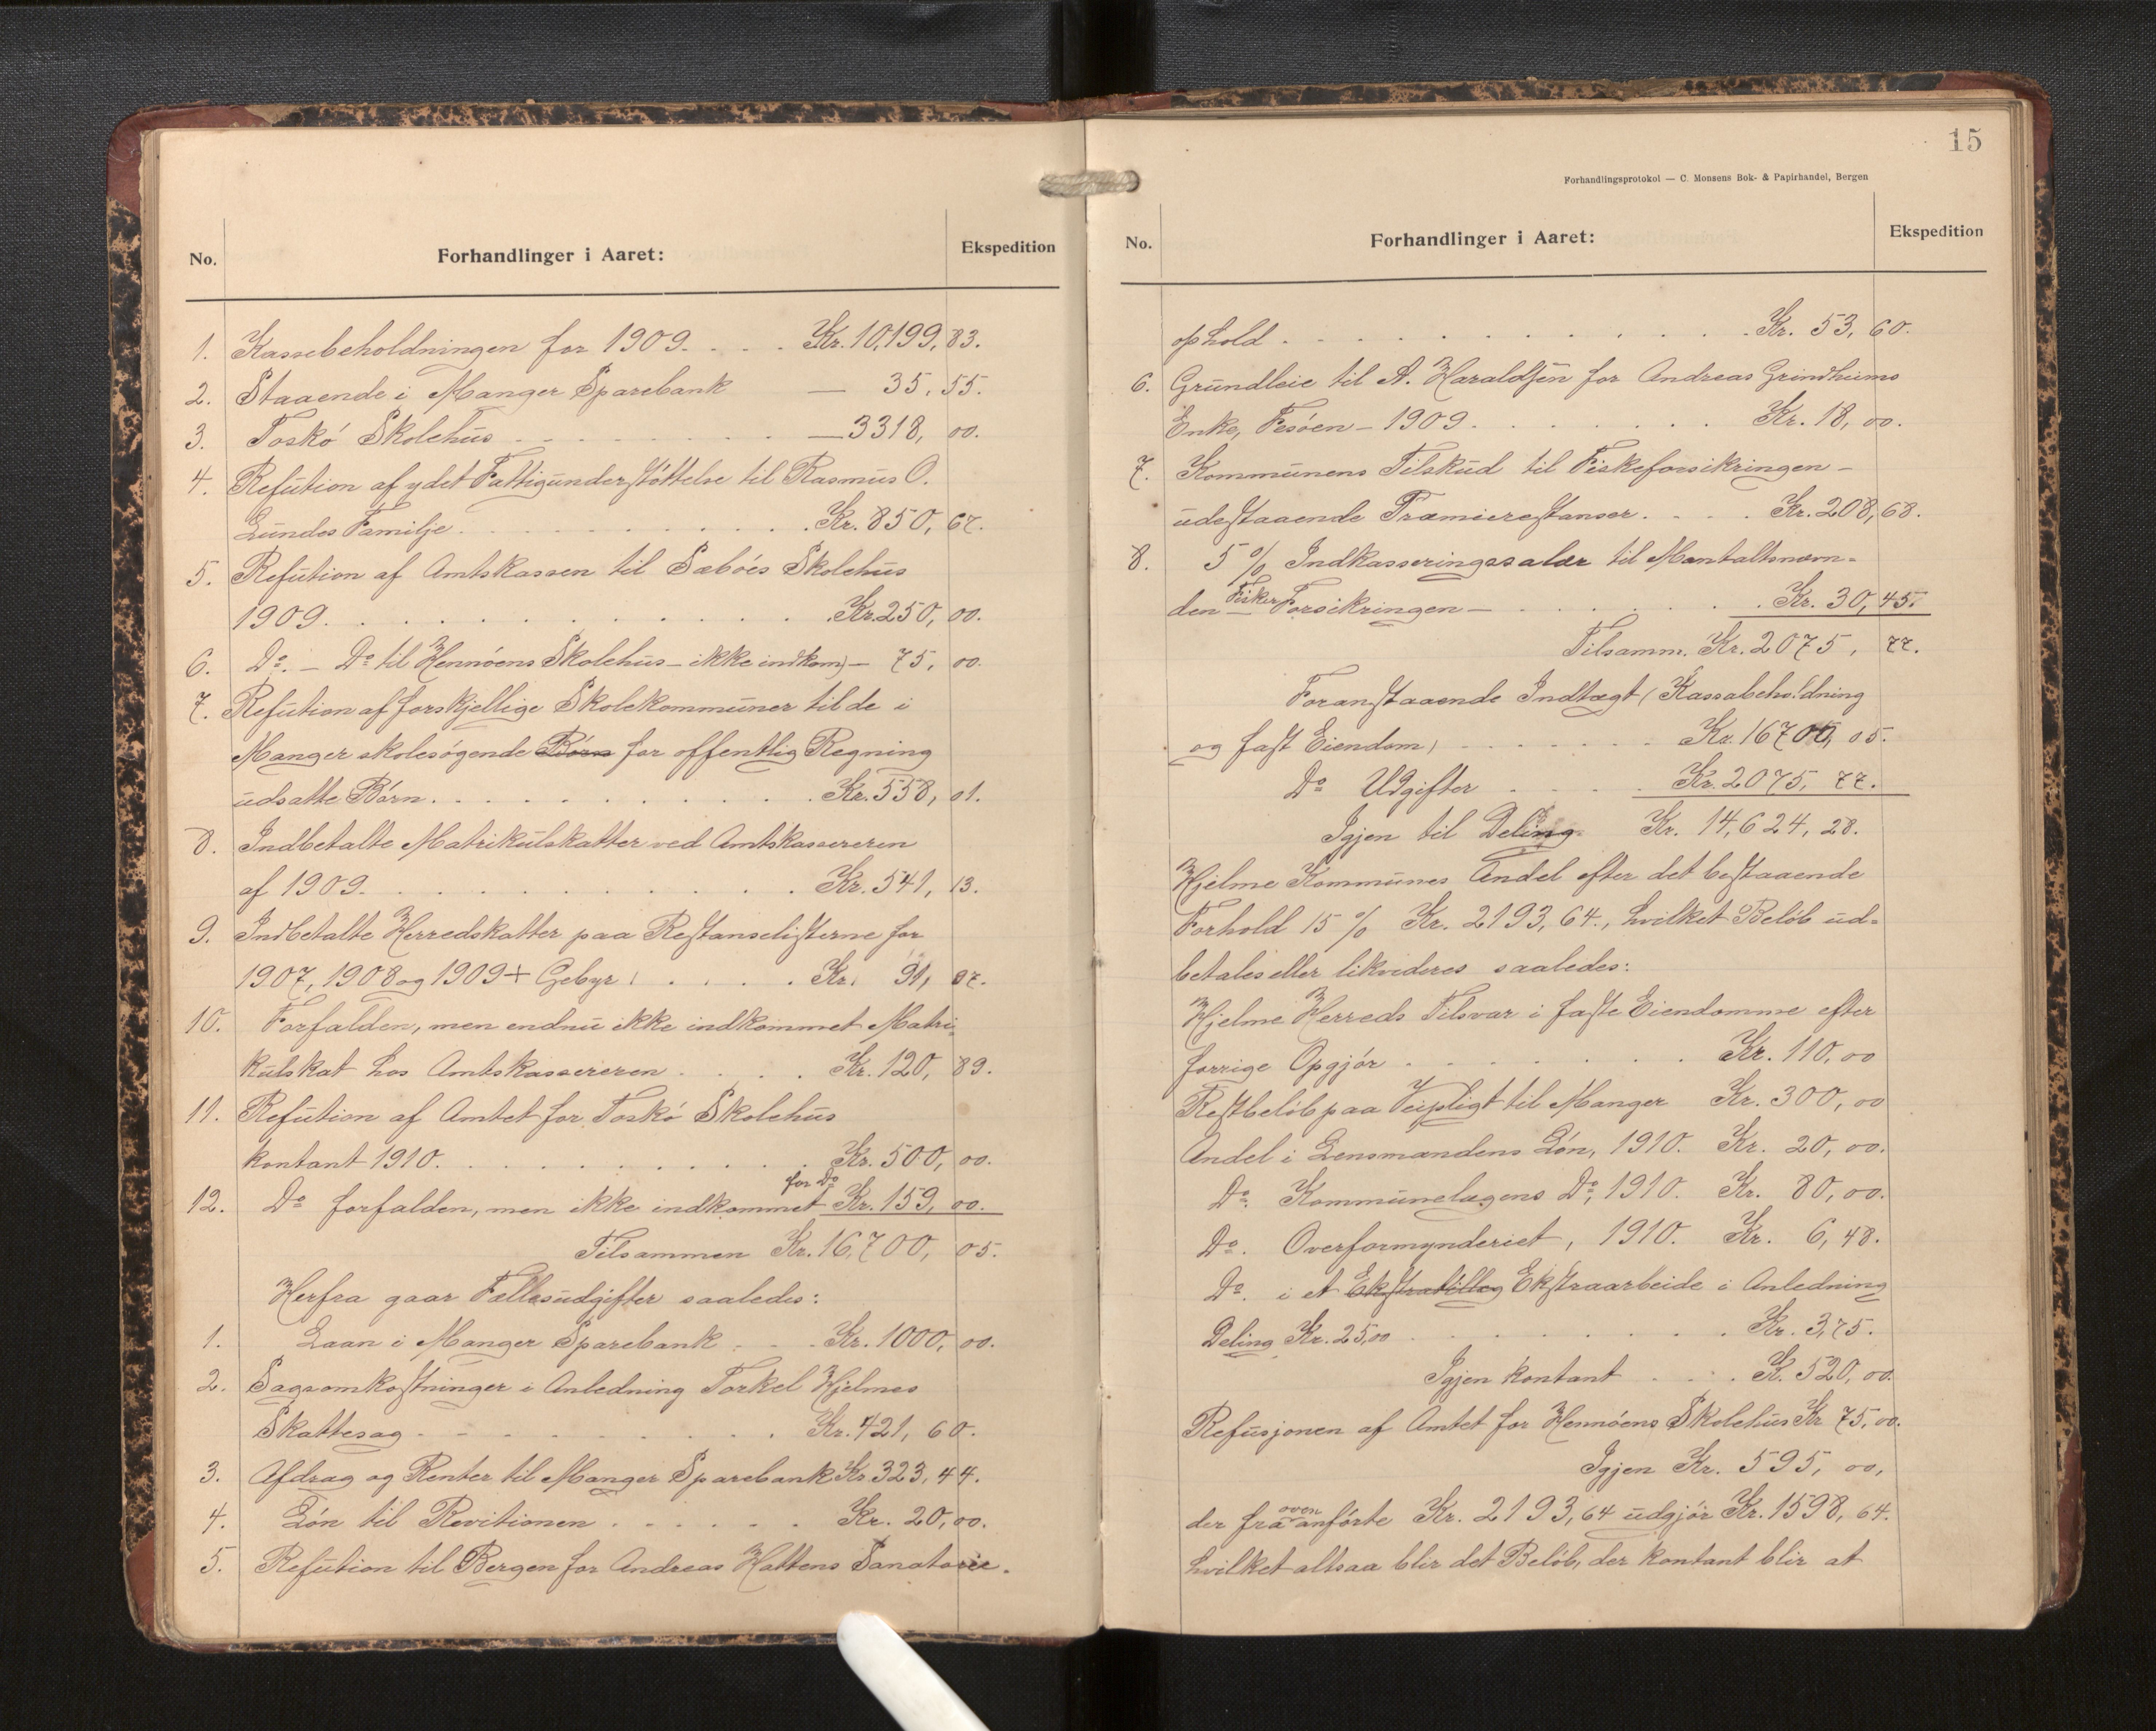 No.
Forhandlinger i Aaret:
Ekspedition
1. Kassebeholdningen for 1909. . . . Kr. 10,199, 83.
2. Staaende i Manger Sparebank — 35, 55.
3. Toskö Skolehus — 3318, 00.
4. Refution af ydet Fattigunderstøttelse til Rasmus O.
Lundes Familje . . . Kr. 850, 67.
5. Refution af Amtskassen til Sæbøes Skolehus
1909. . . . Kr. 250, 00.
6. Do. — Do til Hennøens Skolehus — ikke indkom) — 75, 00.
7. Refution af forskjellige Skolekommuner til de i
Manger skolesøgende Børn for offentlig Regning
udsatte Børn. . . . Kr. 558, 01.
8. Indbetalte Matrikulskatter ved Amtskassereren
af 1909. . . . Kr. 541, 13.
9. Indbetalte Herredskatter paa Restanselisterne for
1907, 1908 og 1909 + Gebyr . . . Kr. 91, 97.
10. Forfalden, men endnu ikke indkommet Matri-
kulskat hos Amtskassereren . . . Kr. 120, 89.
11. Refution af Amtet for Toskö Skolehus
kontant 1910. . . . Kr. 500, 00.
for Do
12. Do forfalden, men ikke indkommet Kr. 159, 00.
Tilsammen Kr. 16,700, 05.
Herfra gaar Fællesudgifter saaledes:
1. Laan i Manger Sparebank . . . Kr. 1000, 00.
2. Sagsomkostninger i Anledning Torkel Hjelmes
Skattesag . . . Kr. 421, 60.
3. Afdrag og Renter til Manger Sparebank Kr. 323, 44.
4. Løn til Revitionen . . . Kr. 20, 00.
5. Refution til Bergen for Andreas Hattens Sanatorie-
15
Forhandlingsprotokol — C. Monsens Bok- & Papirhandel, Bergen
No.
Forhandlinger i Aaret:
Ekspedition
ophold . . . Kr. 53, 60.
6. Grundleie til A. Haraldsen for Andreas Grindheims
Enke, Fesøen — 1909. . . . Kr. 18, 00.
7. Kommunens Tilskud til Fiskeforsikringen —
udestaaende Præmierestanser. . . . Kr. 208, 68.
8. 5 % Indkasseringssalær til Mantaltsnævn-
den Fisker Forsikringen — . . . Kr. 30, 45.
Tilsamm. Kr. 2075, 77.
Foranstaaende Indtægt (Kassabeholdning
og fast Eiendom) . . . Kr. 16700, 05.
Do Udgifter . . . Kr. 2075, 77.
Igjen til Deling Kr. 14,624, 28.
Hjelme Kommunes Andel efter det bestaaende
Forhold 15 % Kr. 2193, 64., hvilket Beløb ud-
betales eller likvideres saaledes:
Hjelme Herreds Tilsvar i faste Eiendomme efter
forrige Opgjør . . . Kr. 110, 00
Restbeløb paa Veipligt til Manger Kr. 300, 00
Andel i Lensmandens Løn, 1910. Kr. 20, 00.
Do. Kommunelægens Do, 1910. Kr. 80, 00.
Do. Overformynderiet, 1910. Kr. 6, 48.
Do. i et Ekstratillæg Ekstraarbeide i Anledning
Deling Kr. 25,00 . . . Kr. 3,75.
Igjen kontant . . . K. 520, 00.
Refusjonen af Amtet for Hennøens Skolehus Kr 75, 00.
Igjen Kr. 595, 00,
der fra oven anførte Kr. 2193, 64 udgjør Kr. 1598, 64.
hvilket altsaa blir det Beløb, der kontant blir at